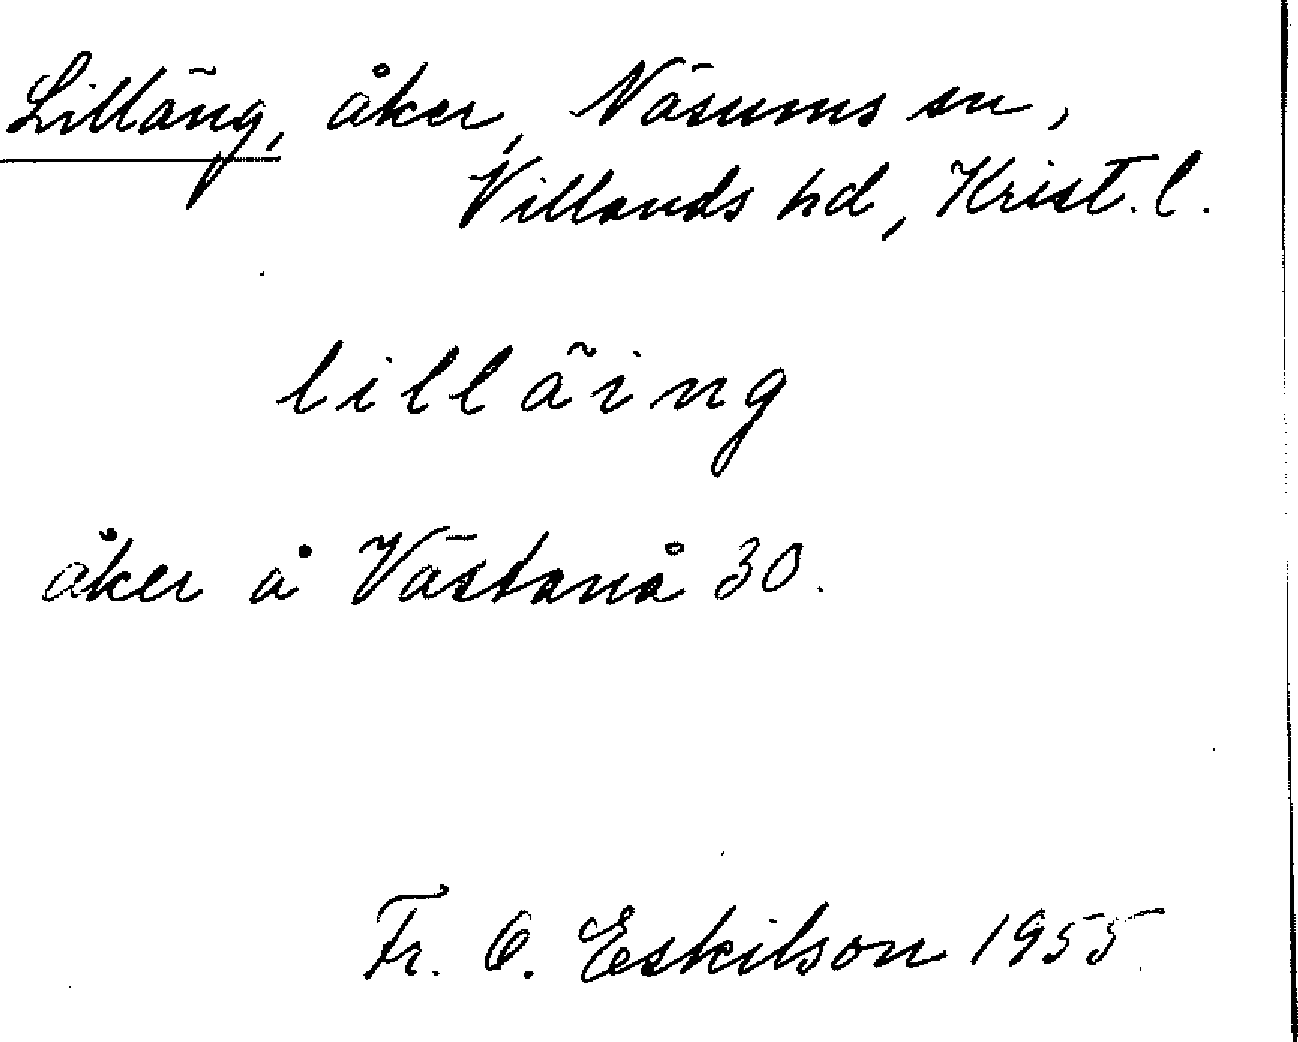 Lilläng, åker, Näsums sn,
Villands hd, Krist. l.
lilläing
åker å Västanå 30.
Fr. O. Eskilson 1955